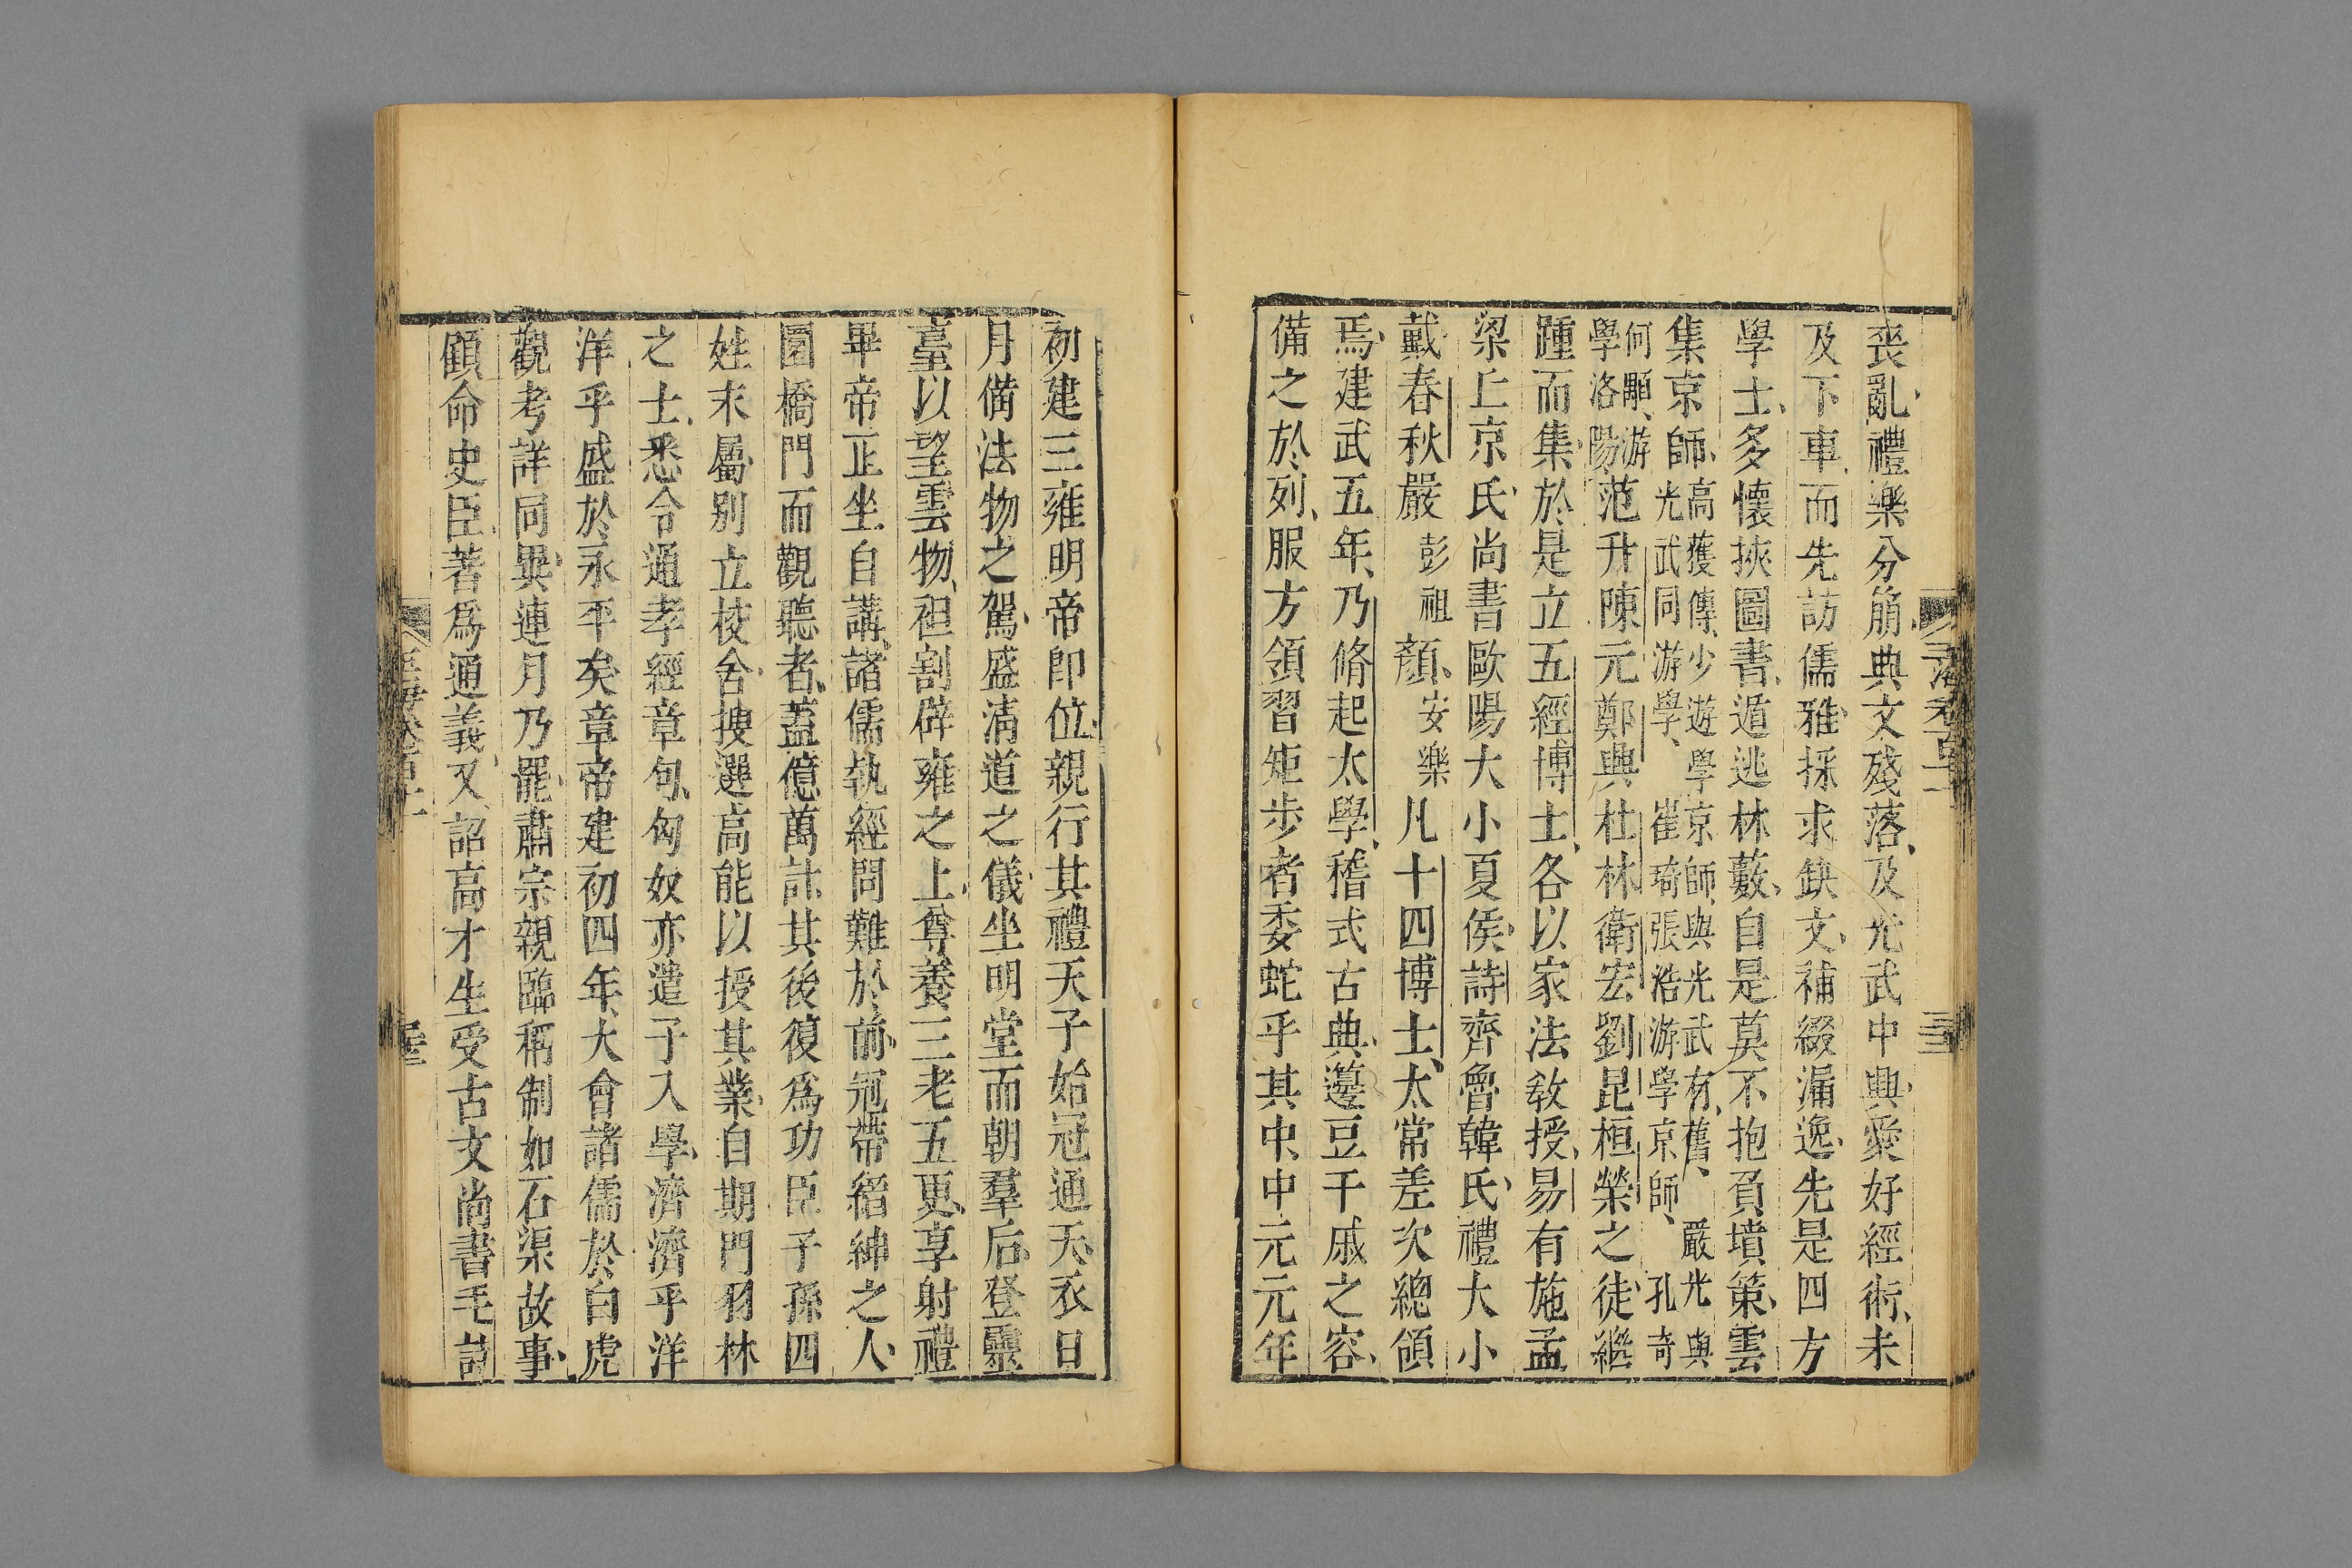 喪亂禮樂分崩、典文殘落、及光武中興、愛好經術、未
及下車、而先訪儒雅、採求缺文、補綴漏逸、先是四方
學士、多懷挾圖書、遁逃林藪、自是莫不抱負墳策、雲
集京師、高獲傳、少遊學京師、與光武有舊、嚴光與光武同游學、崔琦張浩游學京師、孔奇
何顒、游學洛陽范升陳元鄭興杜林衛宏劉昆桓榮之徒、繼
踵而集、於是立五經博士、各以家法敎授、易有施孟
梁丘京氏、尚書歐陽大小夏侯、詩齊魯韓氏、禮大小
戴、春秋嚴彭祖顏、安樂凡十四博士、太常差次總領
焉、建武五年、乃脩起太學、稽式古典、籩豆干戚之容、
備之於列、服方領習矩步者、委蛇乎其中、中元元年
初建三雍明帝卽位、親行其禮天子始冠通天、衣日
月備法物之駕、盛淸道之儀、坐明堂而朝羣后、登靈
臺以望雲物、袒割辟雍之上、尊養三老五更、享射禮
畢、帝正坐自講、諸儒執經問難於前、冠帶縉紳之人、
圜橋門而觀聽者、蓋億萬計其後復爲功臣子孫四
姓末屬、別立校舍、搜選高能以授其業、自期門羽林
之士、悉令通孝經章句、匈奴亦遣子入學、濟濟乎洋
洋乎盛於永平矣章帝建初四年、大會諸儒於白虎
觀、考詳同異、連月乃罷、肅宗親臨稱制如石渠故事、
顧命史臣、著爲通義、又詔高才生受古文尚書毛詩